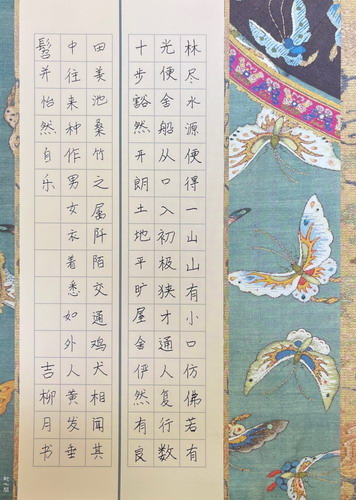 林尽水源便得一山山有小口仿佛若有
光便舍船从口入初极狭才通人复行数
十步豁然开朗土地平旷屋舍俨然有良
田美池桑竹之属阡陌交通鸡犬相闻其
中往来种作男女衣着悉如外人黄发垂
髫并怡然自乐
吉柳月书